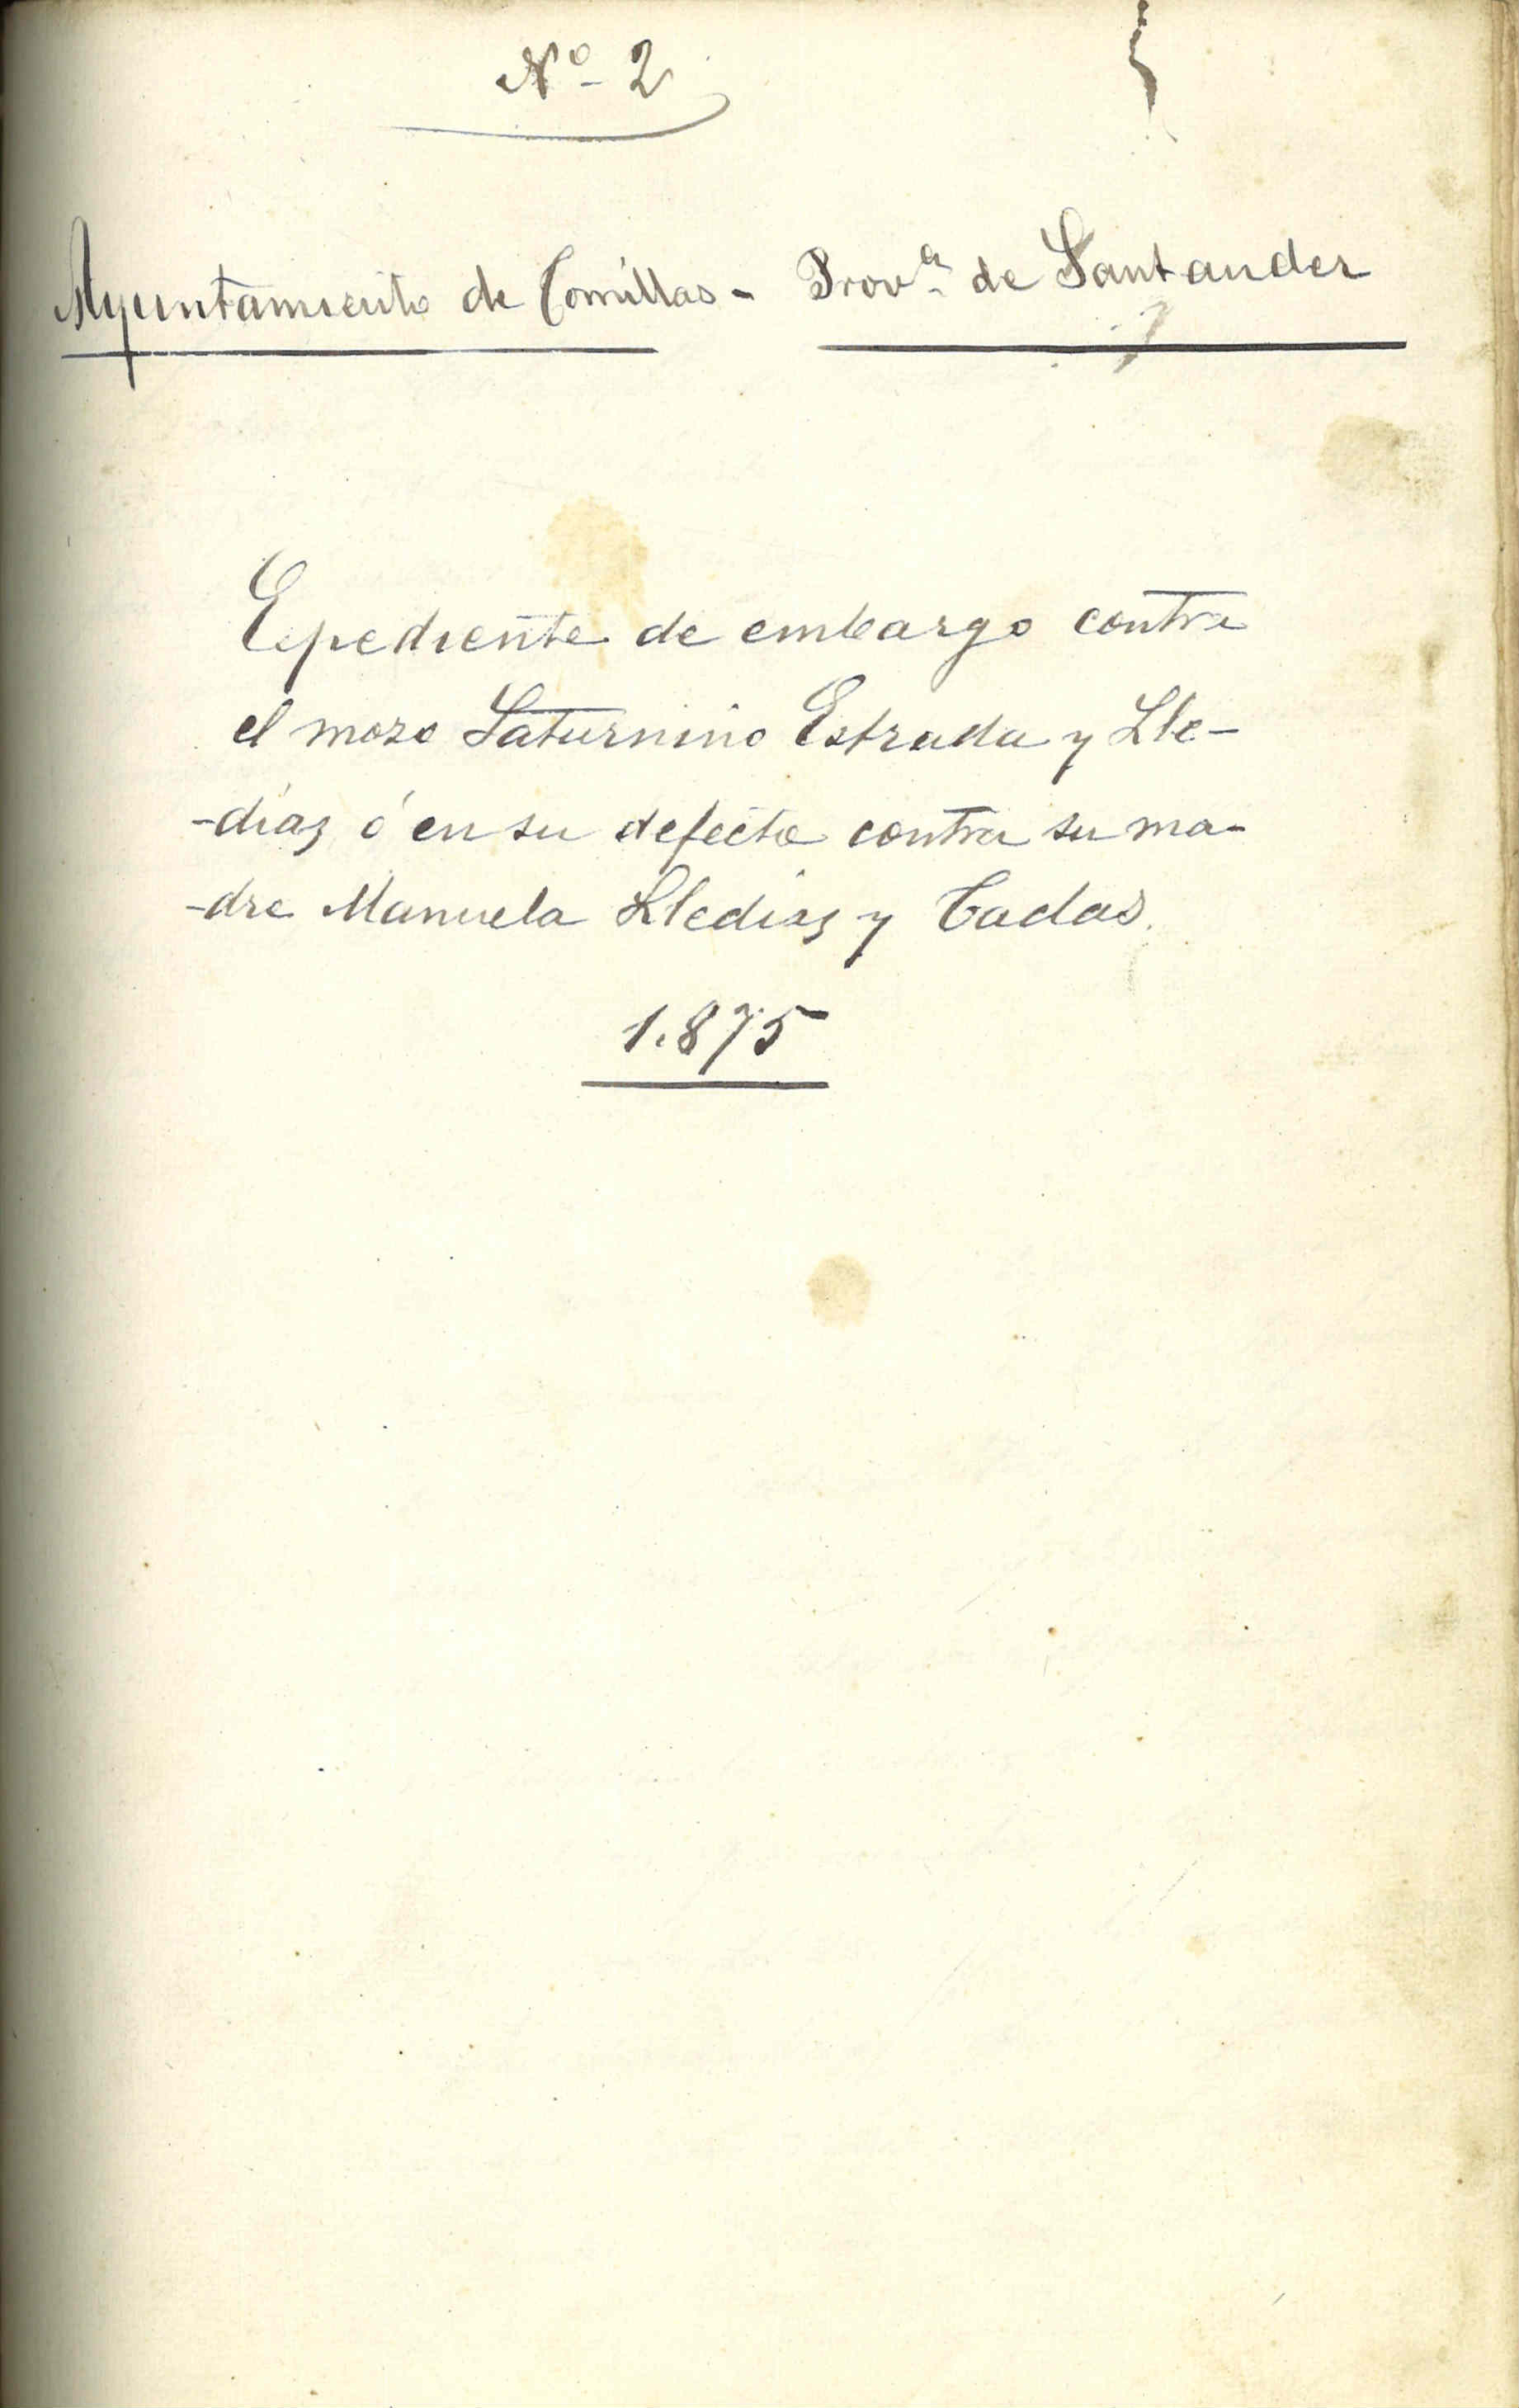 Nº 2
Ayuntamiento de Comillas - Provª de Santander
Espediente de embargo contra
el moso Saturnino Estrada y Lle-
-diaz ó en su defecto contra su ma-
-dre Manuela Llediaz y
1.875